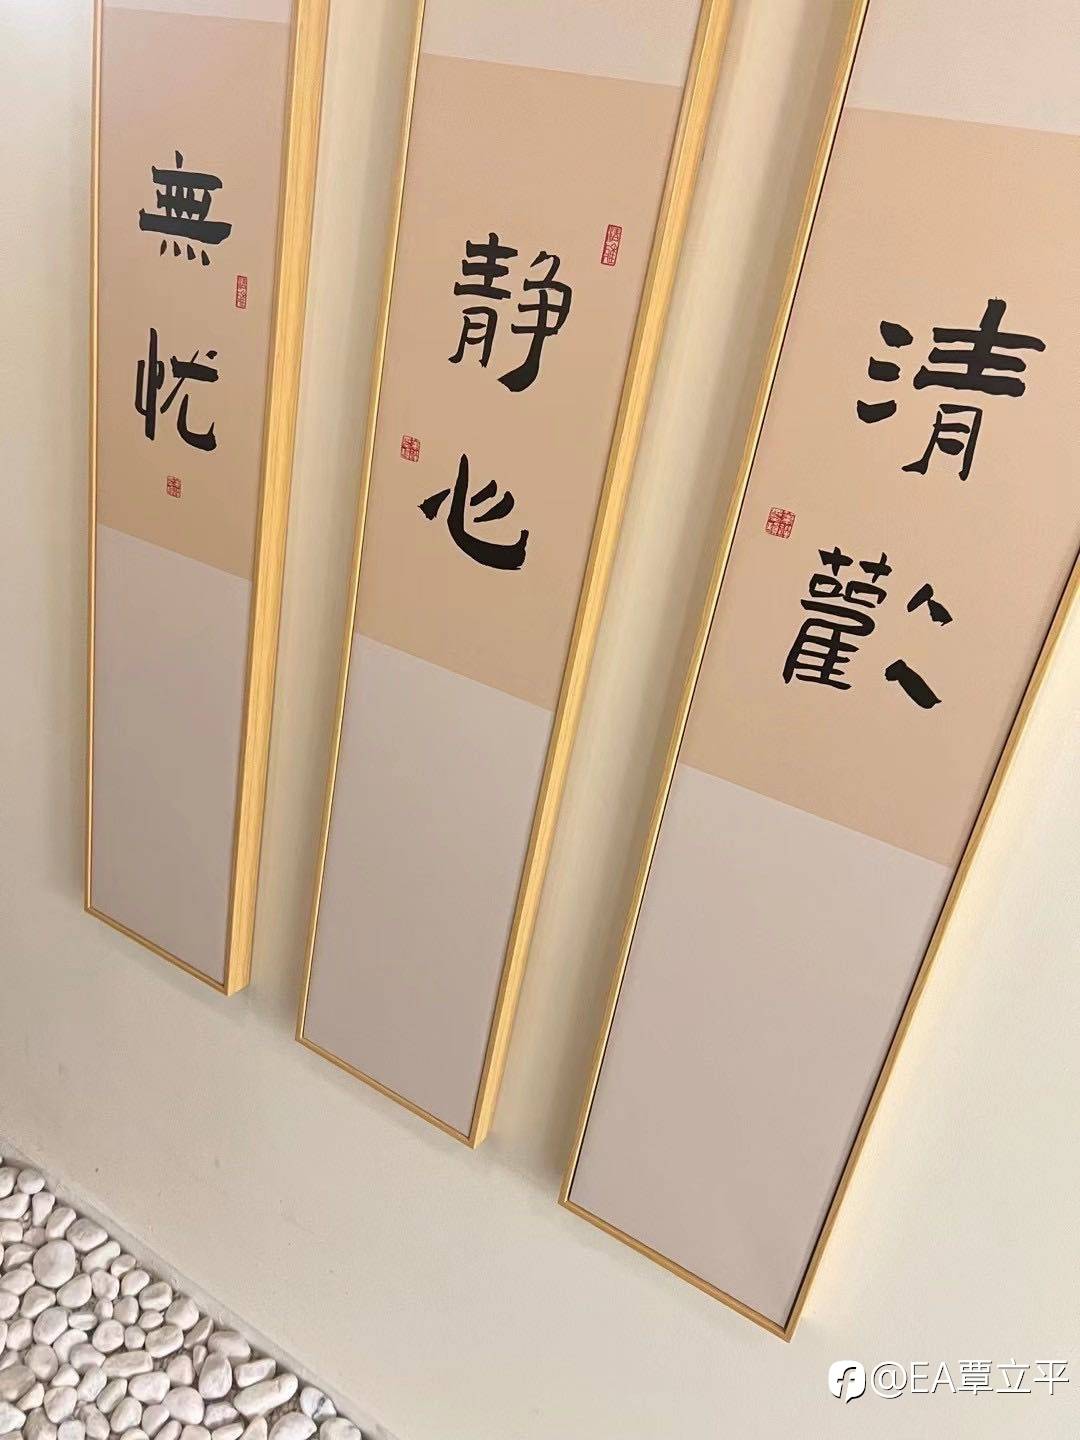 無忧
静心
清歡
@EA覃立平